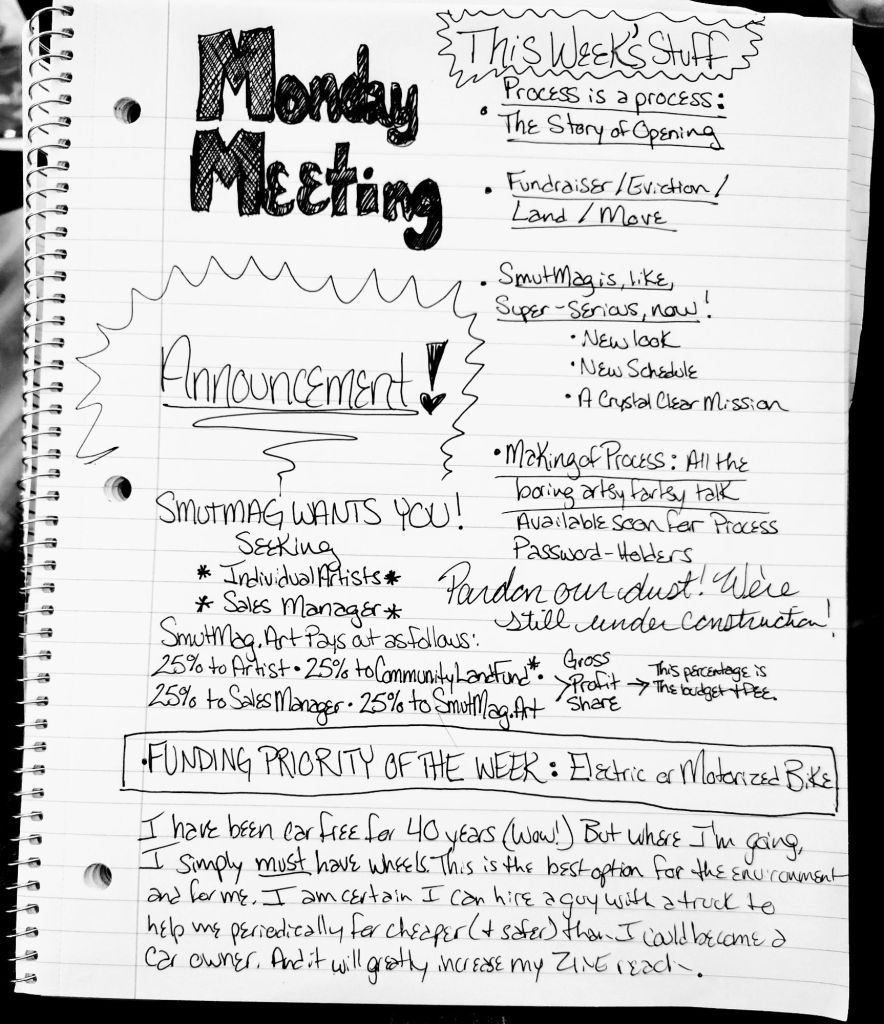 Monday
Meeting
This Week's Stuff
• Process is a process:
The Story of Opening
• Fundraiser/Eviction/
Land/Move
• SmutMag is, like,
Super-Serious, now!
• New look
• New Schedule
• A Crystal Clear Mission
• Making of Process: All the
boring artsy fartsy talk
Available soon for Process
Password-Holders
Pardon our dust! We're
still under construction!
Announcement!
SMUTMAG WANTS YOU!
Seeking
* Individual Artists *
* Sales Manager *
SmutMag.Art Pays out as follows:
25% to Artist • 25% to Community Land Fund* •
25% to Sales Manager • 25% to SmutMag.Art
Gross
Profit
Share
→ This percentage is
The budget +
• FUNDING PRIORITY OF THE WEEK: Electric or Motorized Bike
I have been car free for 40 years (Wow!) But where I'm going,
I simply must have wheels. This is the best option for the environment
and for me. I am certain I can hire a guy with a truck to
help me periodically for cheaper (+ safer) than I could become a
car owner. And it will greatly increase my ZINE reach.